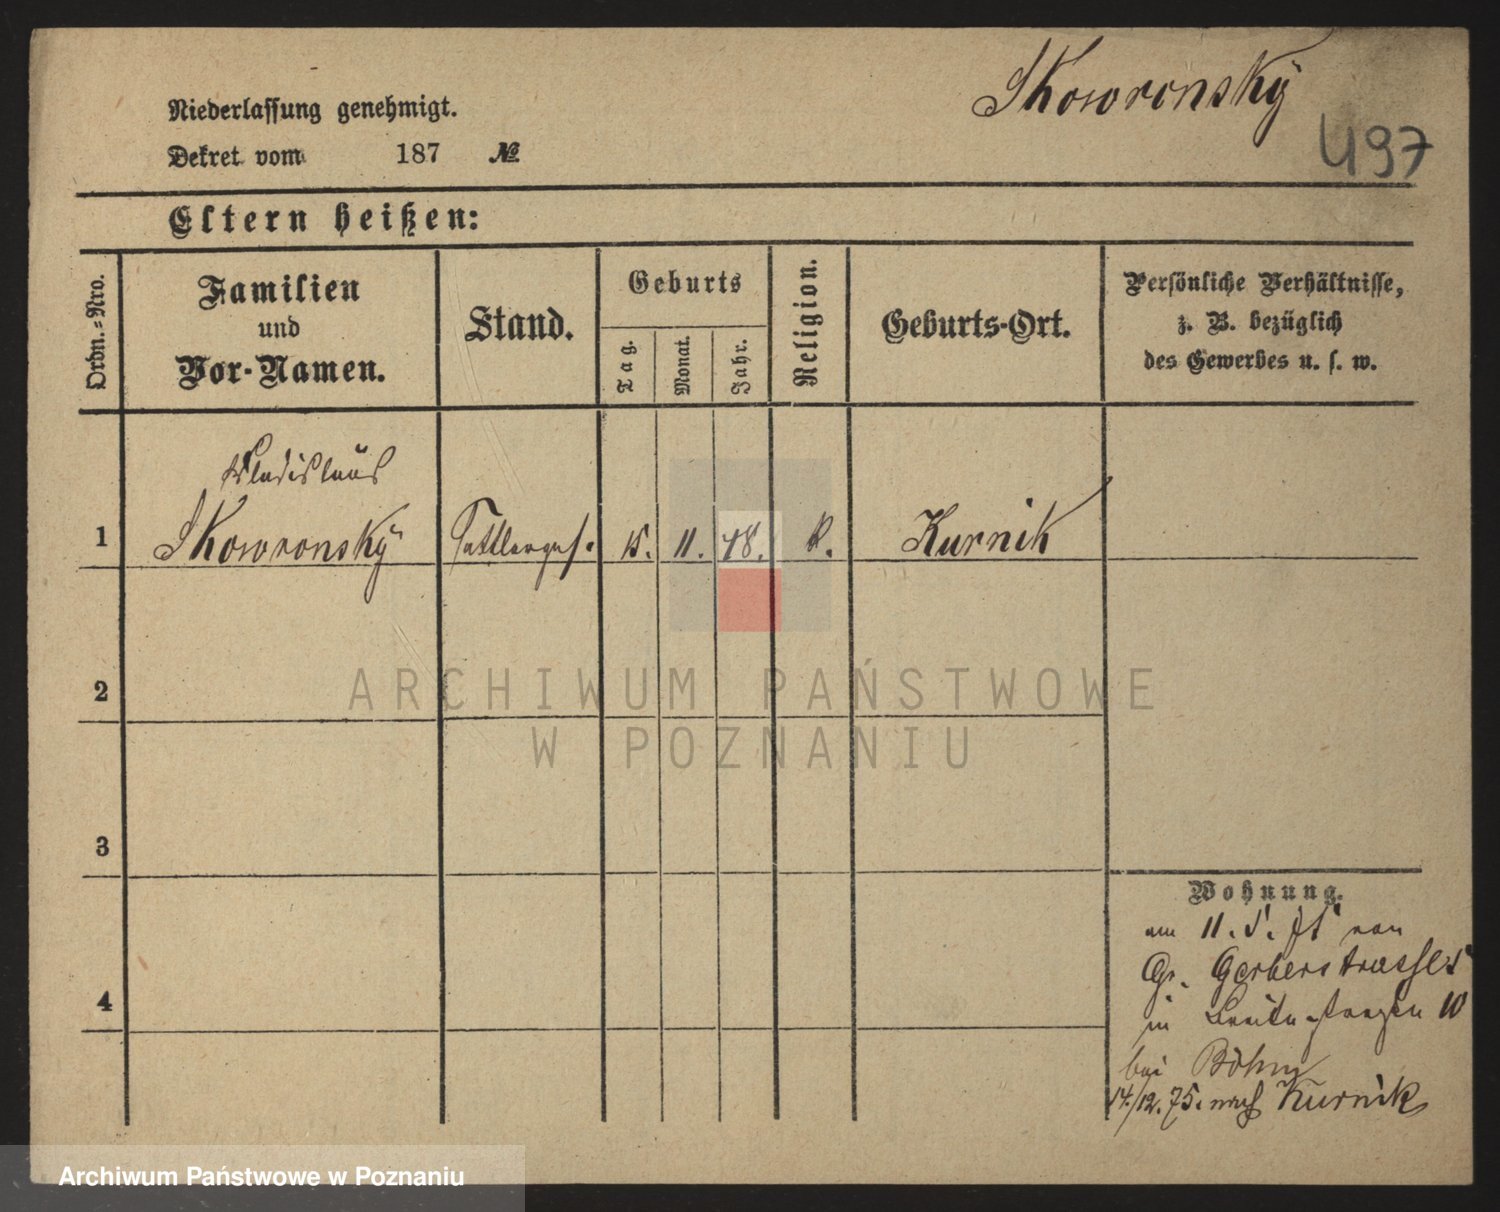 Skowronsky
497
Niederlassung genehmigt.
Dekret vom 187 №
Eltern heißen:
Ordn.=Nro.
Familien
und
Vor-Namen.
Stand.
Geburts
Tag.
Monat.
Jahr.
Religion.
Geburts-Ort.
Persönliche Verhältnisse,
z. B. bezüglich
des Gewerbes u. s. w.
Wladislaus
1 Skowronsky Sattlerges. 15. 11. 48. K. Kurnik
2
3
4
Wohnung.
am 11. 5. von
Gr. Gerberstrasse
in 10
bei Böhm
14/12. 75. nach Kurnik
ARCHIWUM PAŃSTWOWE
W POZNANIU
Archiwum Państwowe w Poznaniu